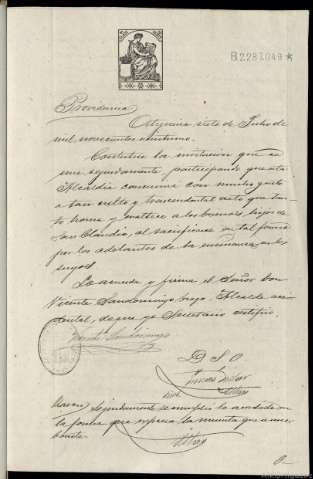 B.2281.049 *
Providencia
Ortigueira siete de Julio de
mil novecientos veintiuno.
Contéstese la invitación que
participando que esta
Alcaldía concurrirá con mucho gusto
a tan culto y trascendental acto que tan-
to honra y enaltece a los buenos hijos de
San Claudio, al sacrificarse en tal forma
por los adelantos de la enseñanza en los
suyos.
Lo acuerda y firma el Señor Don
Vicente Sandomingo Alcalde acci-
dental, de que yo Secretario certifico.
Vicente Sandomingo
D. S. O.
Seguidamente se cumplió lo acordado en
la forma que expresa la minuta que a